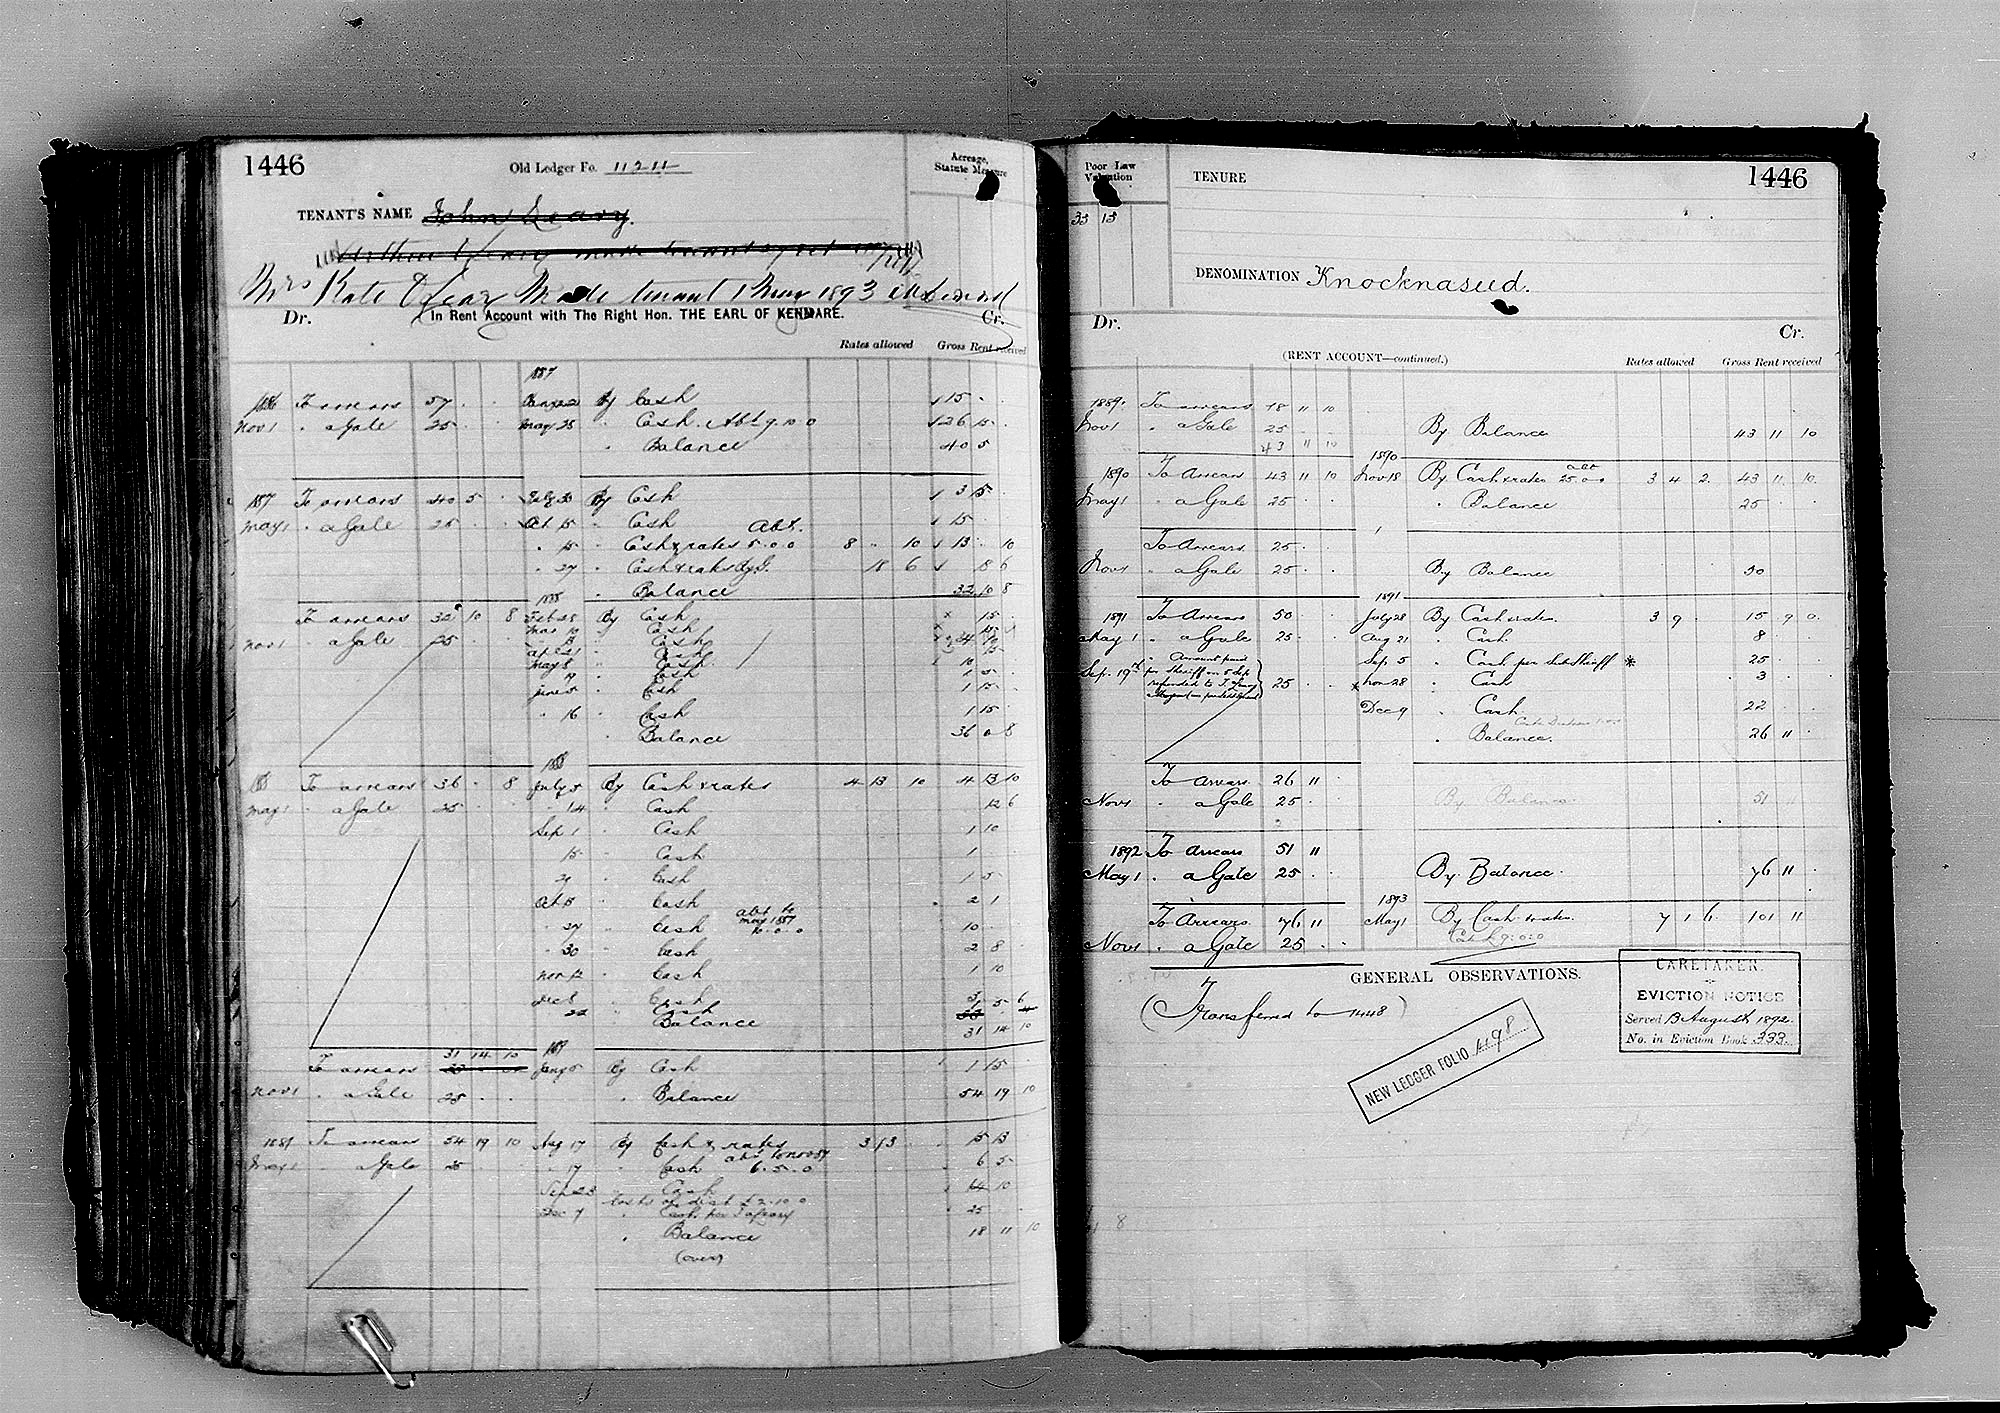 1446
Old Ledger Fo. 11211
Acreage, Statute Measure
TENANT'S NAME John Leary.
made tenant
Mrs Kate O'Leary Made tenant 1 May 1893
Dr. In Rent Account with The Right Hon. THE EARL OF KENMARE. Cr.
Rates allowed Gross Rent received
1887
1886 To arrears 57 By Cash 15
Nov 1 " a Gale 25 May 25 " Cash. Abt 9.10.0 26 15
" Balance 40 5
1887 To arrears 40 5 July 30 By Cash 3 15
May 1 " a Gale 25 Oct 15 " Cash Abt. 15
" 15 " Cash & rates 5.0.0 8 " 10 13 10
" 27 " Cash & rates 18 6 18 6
" Balance 32 10 8
1888
To arrears 32 10 8 Feb 28 By Cash 15
Nov 1 " a Gale 25 Mar 10 " Cash
" Cash
" Cash
May 8 " Cash 10
" Cash 1 5
June 5 " Cash 1 15
" 16 " Cash 1 15
" Balance 36 0 8
1888
To arrears 36 " 8 July 5 By Cash & rates 4 13 10 4 13 10
May 1 " a Gale 25 " 14 " Cash 12 6
Sep 1 " Cash 1 10
15 " Cash 1
21 " Cash 1 5
Oct 15 " Cash 2 1
" 27 " Cash abt to May 1887 10.0.0 10
" 30 " Cash 2 8
Nov 12 " Cash 1 10
Dec 8 " Cash
22 " Cash
" Balance 31 14 10
31 14 10 1889
To arrears Jany 5 By Cash 1 15
Nov 1 " a Gale 25 " Balance 54 19 10
1889 To arrears 54 19 10 Aug 17 By Cash & rates 3 13 15 13
May 1 " a Gale 25 " 17 " Cash 6.5.0 6 5
Sep 28 " Cash 14 10
Costs of dist £2.10.0
Dec 7 " Cash per J O'Leary 25
" Balance 18 11 10
(over)
Poor Law Valuation
35 15
TENURE
1446
DENOMINATION Knocknaseed.
Dr. Cr.
(RENT ACCOUNT—continued.) Rates allowed Gross Rent received
1889 To arrears 18 11 10
Nov 1 " a Gale 25 By Balance 43 11 10
43 11 10
1890
1890 To Arrears 43 11 10 Nov 18 By Cash & rates abt 25.0.0 3 4 2 43 11 10
May 1 " a Gale 25 " Balance 25
To Arrears 25
Nov 1 " a Gale 25 By Balance 50
1891
1891 To Arrears 50 July 28 By Cash & rates 3 9 15 9 0
May 1 " a Gale 25 Aug 21 " Cash 8
Sep. 19th " Amount paid per Sheriff on 5 Sep refunded to J O'Leary 25 Sep 5 " Cash per Sub Sheriff * 25
* Nov 28 " Cash 3
Dec 9 " Cash 22
" Balance. 26 11
To Arrears 26 11
Nov 1 " a Gale 25 By Balance 51
1892 To Arrears 51 11
May 1 " a Gale 25 By Balance 76 11
1893
To Arrears 76 11 May 1 By Cash & rates. 7 1 6 101 11
Nov 1 " a Gale 25
GENERAL OBSERVATIONS.
(Transferred to 1448)
NEW LEDGER FOLIO 1198
CARETAKER.
EVICTION NOTICE
Served 13 August 1892.
No. in Eviction Book 333.